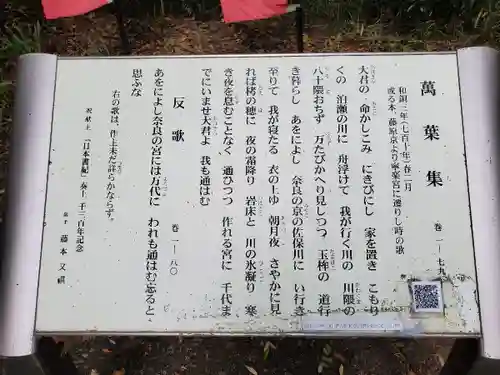 萬葉集
巻一-七九
和銅三年(七百十年)春二月
或る本、藤原京より寧楽宮に遷りし時の歌
大君の 命かしこみ にきびにし 家を置き こもり
くの 泊瀬の川に 舟浮けて 我が行く川の 川隈の
八十隈おちず 万たびかへり見しつつ 玉桙の 道行
き暮らし あをによし 奈良の京の佐保川に い行き
至りて 我が寝たる 衣の上ゆ 朝月夜 さやかに見
れば 栲の穂に 夜の霜降り 岩床と 川の氷凝り 寒
き夜を息むことなく 通ひつつ 作れる宮に 千代ま
でにいませ大君よ 我も通はむ
反歌
巻一-八〇
あをによし奈良の宮には万代に われも通はむ忘ると
思ふな
右の歌は、作主未だ詳らかならず。
祝献上 「日本書紀」奏一千三百年記念
藤本 又祺